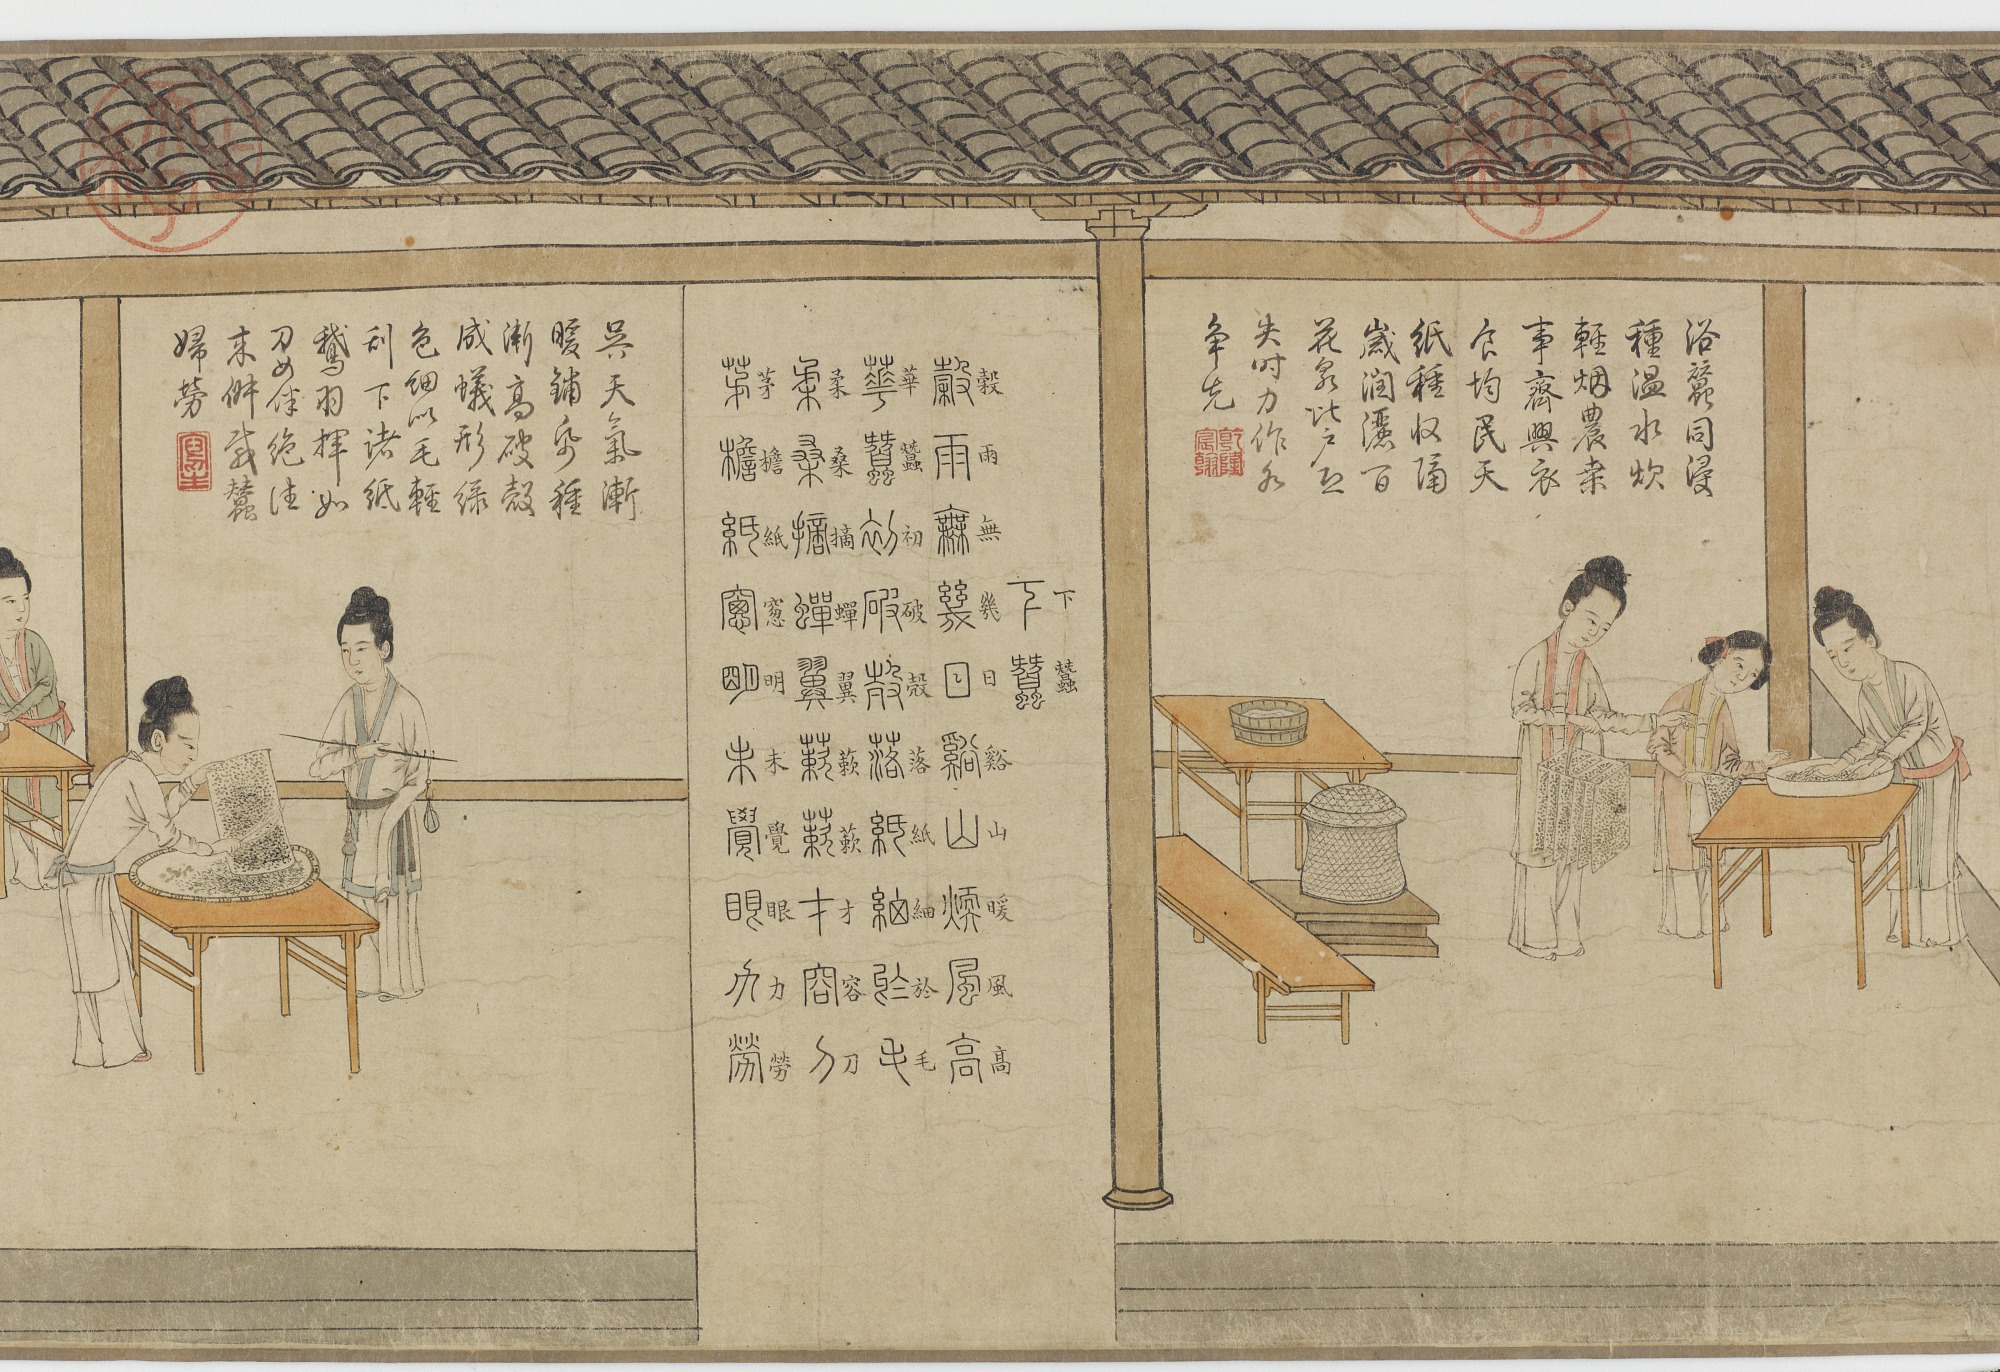 浴蠶同浸
種温水炊
輕烟農桒
事齊興衣
食均民天
紙種收隔
歲潤灑百
花泉比户恐
失时力作各
争先
乾隆宸翰
下蠶
穀雨無幾日谿山暖風高
華蠶初破殼落紙細於毛
柔桑摘蟬翼蔌蔌才容刀
茅檐紙窻明未覺眼力勞
吳天氣漸
暖鋪帋種
漸高破殼
成蟻形綠
色細似毛輕
刮下諸紙
鵝羽揮如
刀女伴絶往
来哉蠶
婦勞